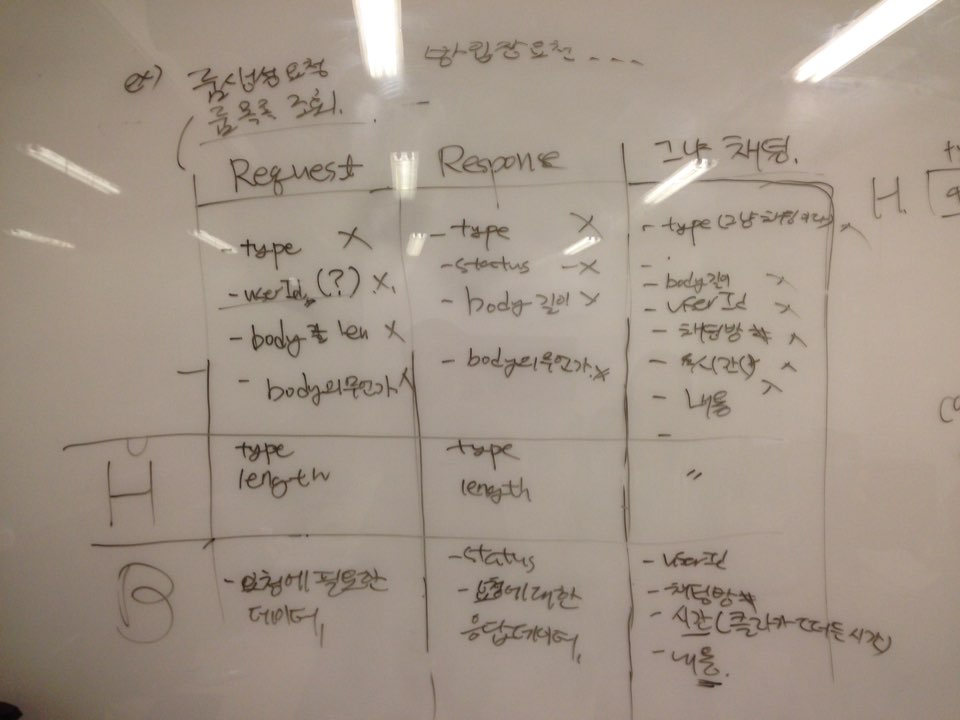 ex) 룸생성요청
방입장요청 ....
룸목록 조회.
Request
Response
그냥 채팅.
- type X
- userId (?) X.
- body len X
- body의 무언가 X
- type X
- status - X
- body 길이 X
- body의 무언가 X
- type (그냥 채팅 X
-
- body 길이 X
- userId X
- 채팅방# X
- X
- 내용 X
-
H
type
length
type
length
"
B
- 요청에 필요한
데이터,
- status
- 요청에 대한
응답데이터,
- userId
- 채팅방#
- 시간 (클라가 시간)
- 내용.
H.